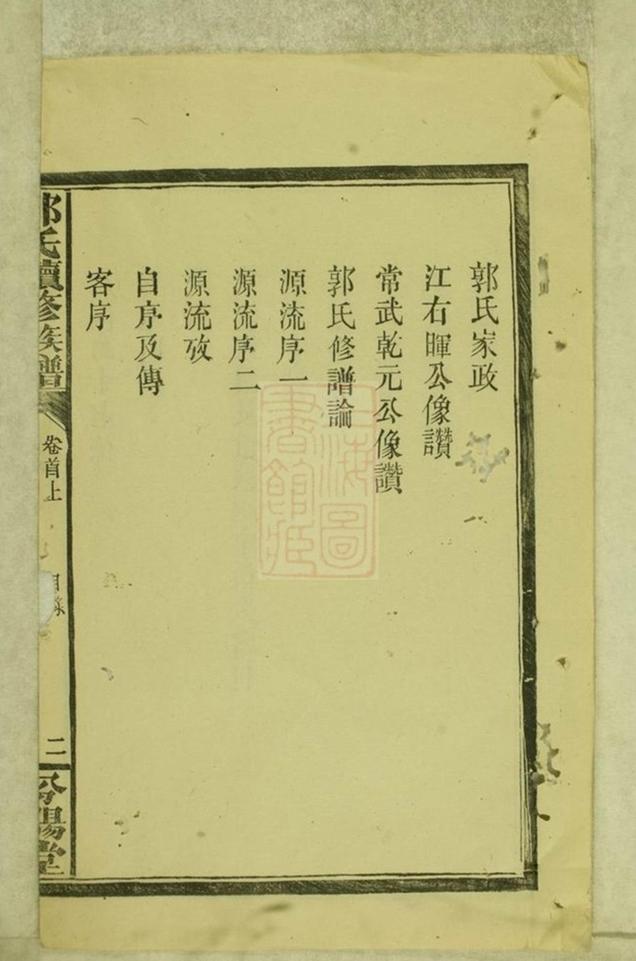 郭氏家政
江右暉公像讚
常武乾元公像讚
郭氏修譜論
源流序一
源流序二
源流攷
自序及傳
客序
郭氏續修族譜
卷首上
目錄
二
汾陽堂
海圖
書館